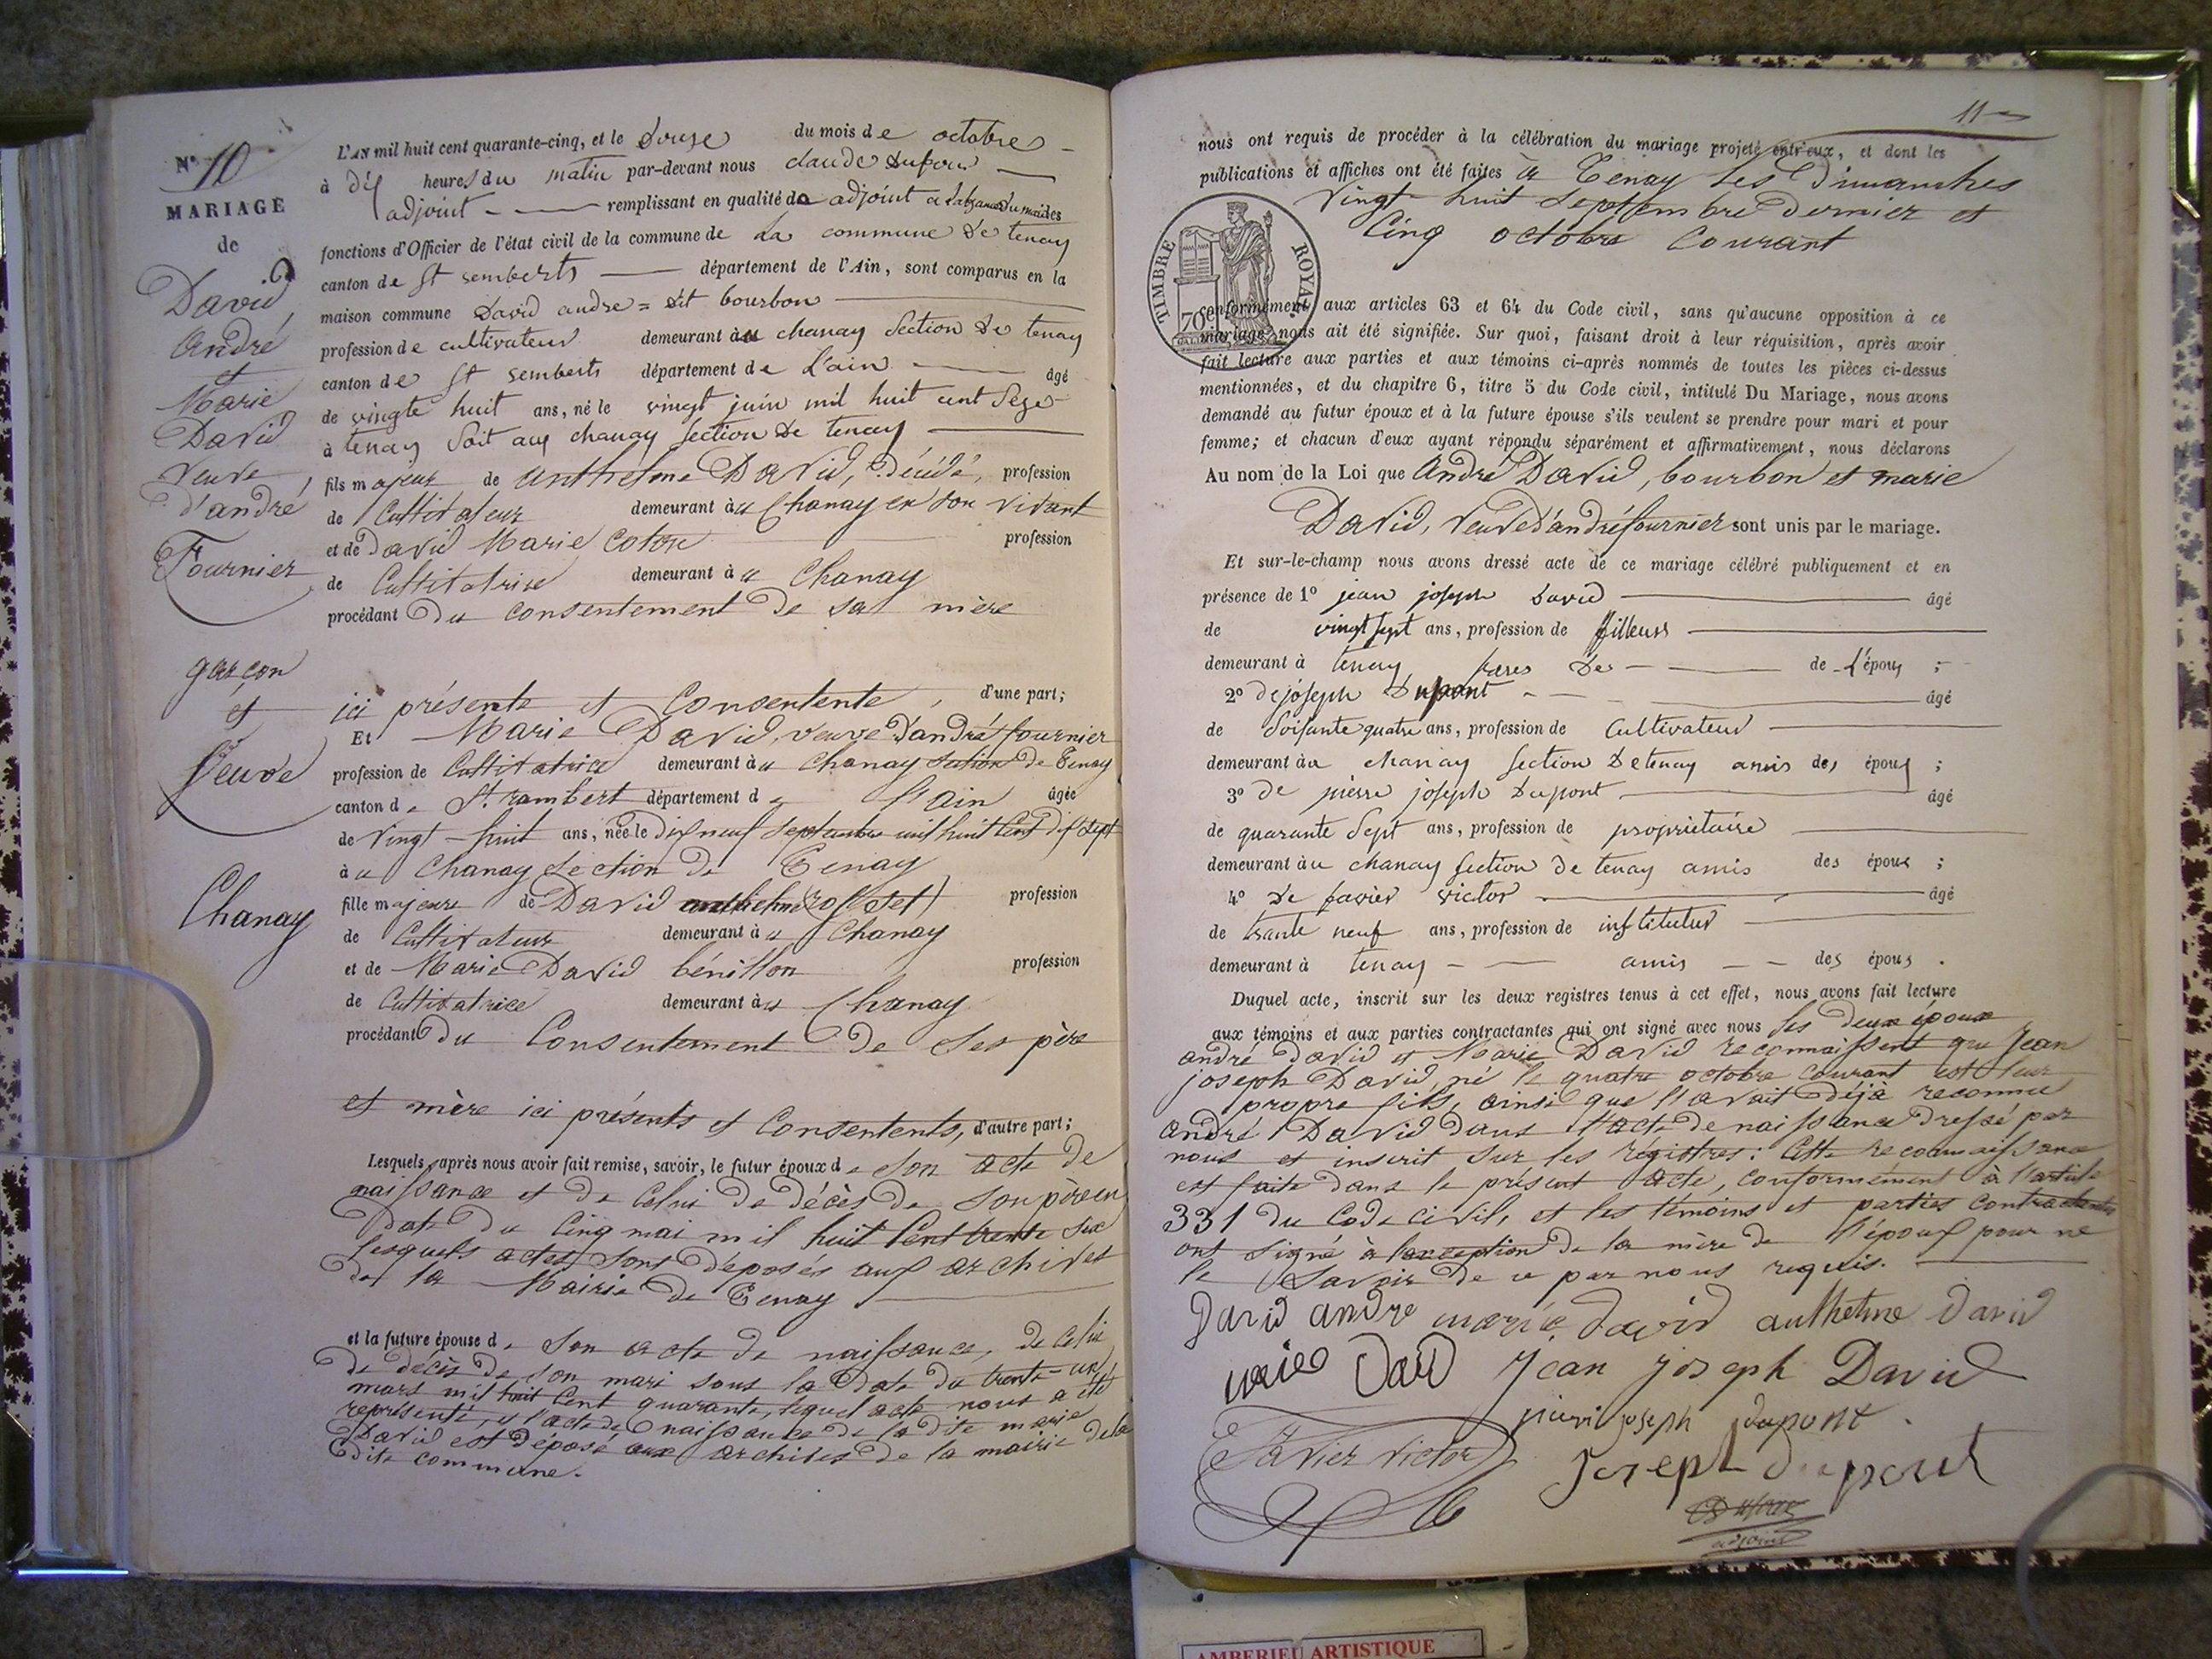 N° 10
MARIAGE
de
David,
André
et
Marie
David
veuve
d'andré
Fournier
garçon
et
Veuve
Chanay
L'AN mil huit cent quarante-cinq, et le Douze du mois de octobre
à dix heures du matin par-devant nous claude dufour
adjoint remplissant en qualité de adjoint a du maire les
fonctions d'Officier de l'état civil de la commune de La commune de tenay
canton de st semberts département de l'Ain, sont comparus en la
maison commune David andre = dit bourbon
profession de cultivateur demeurant au chanay section de tenay
canton de st semberts département de L'ain âgé
de vingte huit ans, né le vingt juin mil huit cent Seze
à tenay soit aux chanay section de tenay
fils majeur de anthelme David, décédé, profession
de Cultivateur demeurant àu Chanay en son vivant
et de David Marie Coton profession
de Cultivatrise demeurant à u Chanay
procédant du consentement de sa mère
ici présente et Consentente, d'une part;
Et Marie David, veuve d'andré fournier
profession de Cultivatrice demeurant àu Chanay section de Tenay
canton de St. rambert département de l'ain âgée
de vingt-huit ans, née le dix neuf septembre mil huit cent dix sept
à u Chanay Section de Tenay
fille majeure de David anthelme (rosset) profession
de Cultivateur demeurant à u Chanay
et de Marie David bénillon profession
de Cultivatrice demeurant à u Chanay
procédant du Consentement de Ses père
et mère ici présents et Consentents, d'autre part;
Lesquels, après nous avoir fait remise, savoir, le futur époux de son acte de
naissance et de Celui de décès de son père en
date du Cinq mai mil huit Cent trente six
lesquels actes sont déposés aux archives
de la Mairie de Tenay
et la future épouse de son acte de naissance, de Celui
de décès de son mari sous la date du trente-un
mars mil huit Cent quarante, lequel acte nous a été
représenté, et l'acte de naissance de la dite marie
David est déposé aux archives de la mairie de la
dite commune.
11
nous ont requis de procéder à la célébration du mariage projeté entr'eux, et dont les
publications et affiches ont été faites à Tenay les Dimanches
Vingt-huit Septembre dernier et
Cinq octobre Courant
TIMBRE ROYAL
70c
conformément aux articles 63 et 64 du Code civil, sans qu'aucune opposition à ce
mariage nous ait été signifiée. Sur quoi, faisant droit à leur réquisition, après avoir
fait lecture aux parties et aux témoins ci-après nommés de toutes les pièces ci-dessus
mentionnées, et du chapitre 6, titre 5 du Code civil, intitulé Du Mariage, nous avons
demandé au futur époux et à la future épouse s'ils veulent se prendre pour mari et pour
femme; et chacun d'eux ayant répondu séparément et affirmativement, nous déclarons
Au nom de la Loi que André David, bourbon et marie
David, Veuve d'andré fournier sont unis par le mariage.
Et sur-le-champ nous avons dressé acte de ce mariage célébré publiquement et en
présence de 1° jean joseph David âgé
de vingt sept ans, profession de filleurs
demeurant à tenay freres des de L'époux ;
2° de joseph Dupont âgé
de Soisante quatre ans, profession de Cultivateur
demeurant àu chanay section de tenay amis des époux ;
3° de pierre joseph dupont âgé
de quarante Sept ans, profession de proprietaire
demeurant àu chanay section de tenay amis des époux ;
4° de favier victor âgé
de trante neuf ans, profession de instituteur
demeurant à tenay amis des époux .
Duquel acte, inscrit sur les deux registres tenus à cet effet, nous avons fait lecture
aux témoins et aux parties contractantes qui ont signé avec nous les deux époux
andré David et Marie David reconnaissent que Jean
joseph David, né le quatre octobre courant est leur
propre fils, ainsi que l'avait déjà reconnu
André David dans l'acte de naissance dressé par
nous et inscrit sur les régistres: Cette reconnaissance
est faite dans le présent acte, conformément à l'article
331 du Code civil, et les témoins et parties contractantes
ont signé à l'exception de la mère de l'époux pour ne
le savoir de ce par nous requis.
David andre marie david anthelme david
marie David Jean joseph David
pierre joseph dupont.
Favier victor Joseph dupont
Dufour
adjoint
AMBERIEU ARTISTIQUE